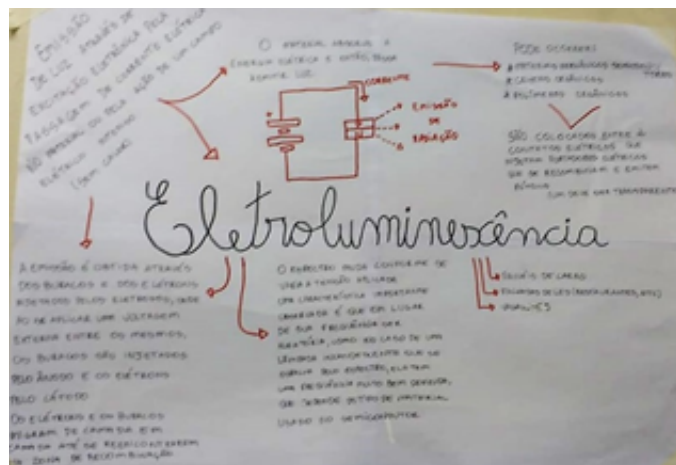 EMISSÃO
DE LUZ ATRAVÉS DE
EXCITAÇÃO ELETRÔNICA PELA
PASSAGEM DE CORRENTE ELÉTRICA
NO MATERIAL OU PELA AÇÃO DE UM CAMPO
ELÉTRICO INTENSO
(SEM CALOR)
O MATERIAL ABSORVE A
ENERGIA ELÉTRICA E ENTÃO PASSA
LUZ.
CORRENTE
EMISSÃO
DE
RADIAÇÃO
PODE
ORGÂNICOS
POLÍMEROS ORGÂNICOS
SÃO COLOCADOS ENTRE
CONTATOS ELÉTRICOS QUE
ELÉTRICOS
QUE SE RECOMBINAM E EMITEM
(UM DEVE SER TRANSPARENTE)
Eletroluminescência
A EMISSÃO É OBTIDA ATRAVÉS
DOS BURACOS E DOS ELÉTRONS
INJETADOS PELOS ELETRODOS, ONDE
AO SE APLICAR UMA VOLTAGEM
EXTERNA ENTRE OS MESMOS,
OS BURACOS SÃO INJETADOS
PELO ÂNODO E OS ELÉTRONS
PELO CÁTODO
OS ELÉTRONS E OS BURACOS
MIGRAM DE CAMADA EM
CAMADA ATÉ SE REENCONTRAREM
NA ZONA DE RECOMBINAÇÃO
O ESPECTRO MUDA CONFORME SE
VARIA A TENSÃO APLICADA
UMA CARACTERÍSTICA IMPORTANTE
É QUE EM LUGAR
DE SUA FREQUÊNCIA SER
ALEATÓRIA, COMO NO CASO DE UMA
LÂMPADA INCANDESCENTE QUE SE
ESPALHA PELO ESPECTRO, ELA TEM
UMA FREQUÊNCIA MUITO BEM DEFINIDA,
QUE DEPENDE DO TIPO DE MATERIAL
USADO NO SEMICONDUTOR
PAINÉIS DE CARRO
FACHADAS DE LED (RESTAURANTES, ETC)